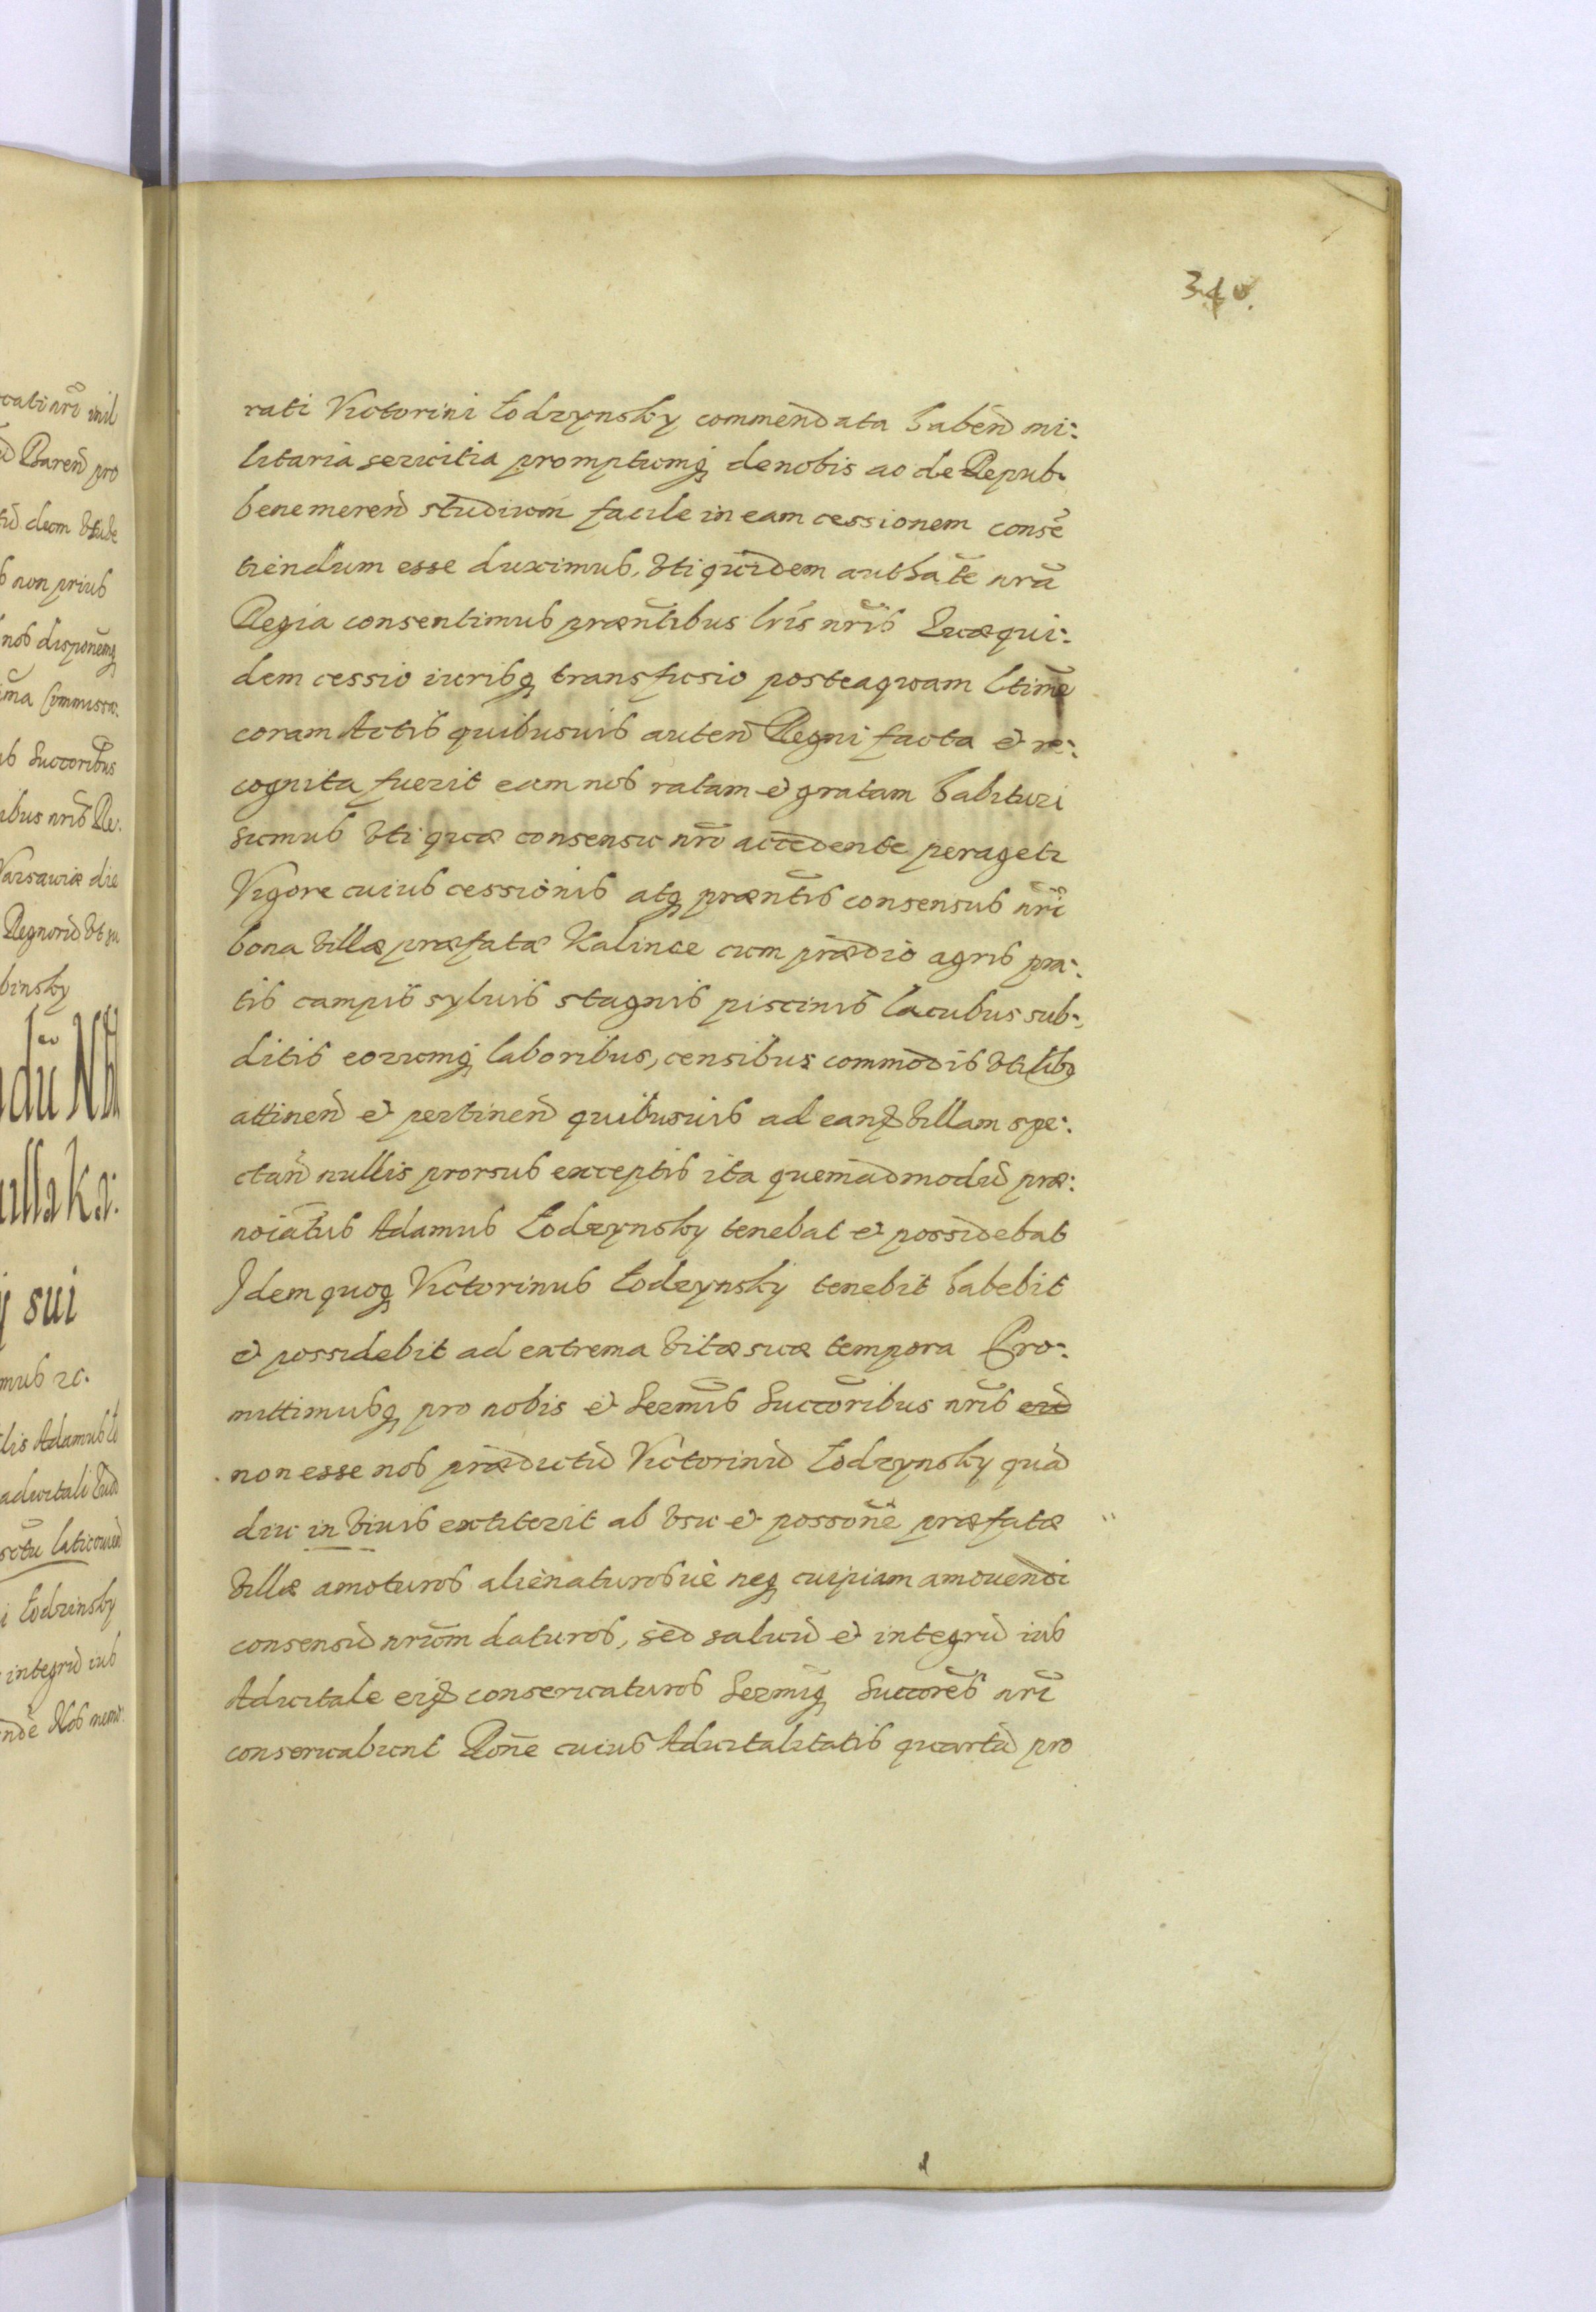 340.
rati Victorini Łodzynsky commendata habeñ mi:
litaria servitia promptumq̃ de nobis ac de Repub.
bene mereñ studium facile in eam cessionem consē
tiendum esse duximus, vti quidem autħate nrã
Regia consentimus præntibus lris nris Quæ qui:
dem cessio iuribq̃ transfusio posteaquam ltime
coram Actis quibusuis auten Regni facta et re:
cognita fuerit eam nos ratam et gratam habituri
sumus vti quæ consensu nro accedente peragetr
Vigore cuius cessionis atq̃ præntis consensus nri
bona villæ præfatæ Kalince cum prædio agris pra:
tis campis syluis stagnis piscinis lacubus sub:
ditis eorumq̃ laboribus, censibus commodis vtilibq
attineñ et pertineñ quibusuis ad eand villam spe:
ctañ nullis prorsus exceptis ita quemadmodũ præ:
noiatus Adamus Łodzynsky tenebat et possidebat
Idem quoq̃ Victorinus Łodzynsky tenebit habebit
et possidebit ad extrema vitæ suæ tempora Pro:
mittimusq̃ pro nobis et Sermis Succoribus nris
non esse nos prædictũ Victorinũ Łodzynsky quã
diu in viuis extiterit ab vsu et possone præfatæ
villæ amoturos alienaturosuè neq̃ cuipiam amouendi
consensũ nrum daturos, sed saluũ et integrũ ius
Aduitale eid conseruaturos Sermiq̃ Succores nri
conseruabunt Rone cuius Aduitalitatis quartã pro
cati nri mil
Bareñ pro
non prius
nos disponemq̃
Commissa:
Succoribus
ibus nris Re.
Varsauiæ die
binsky
sui
mus zc.
lis Adamus Ło
aduitali
Łodzinsky
integrũ ius
Nos